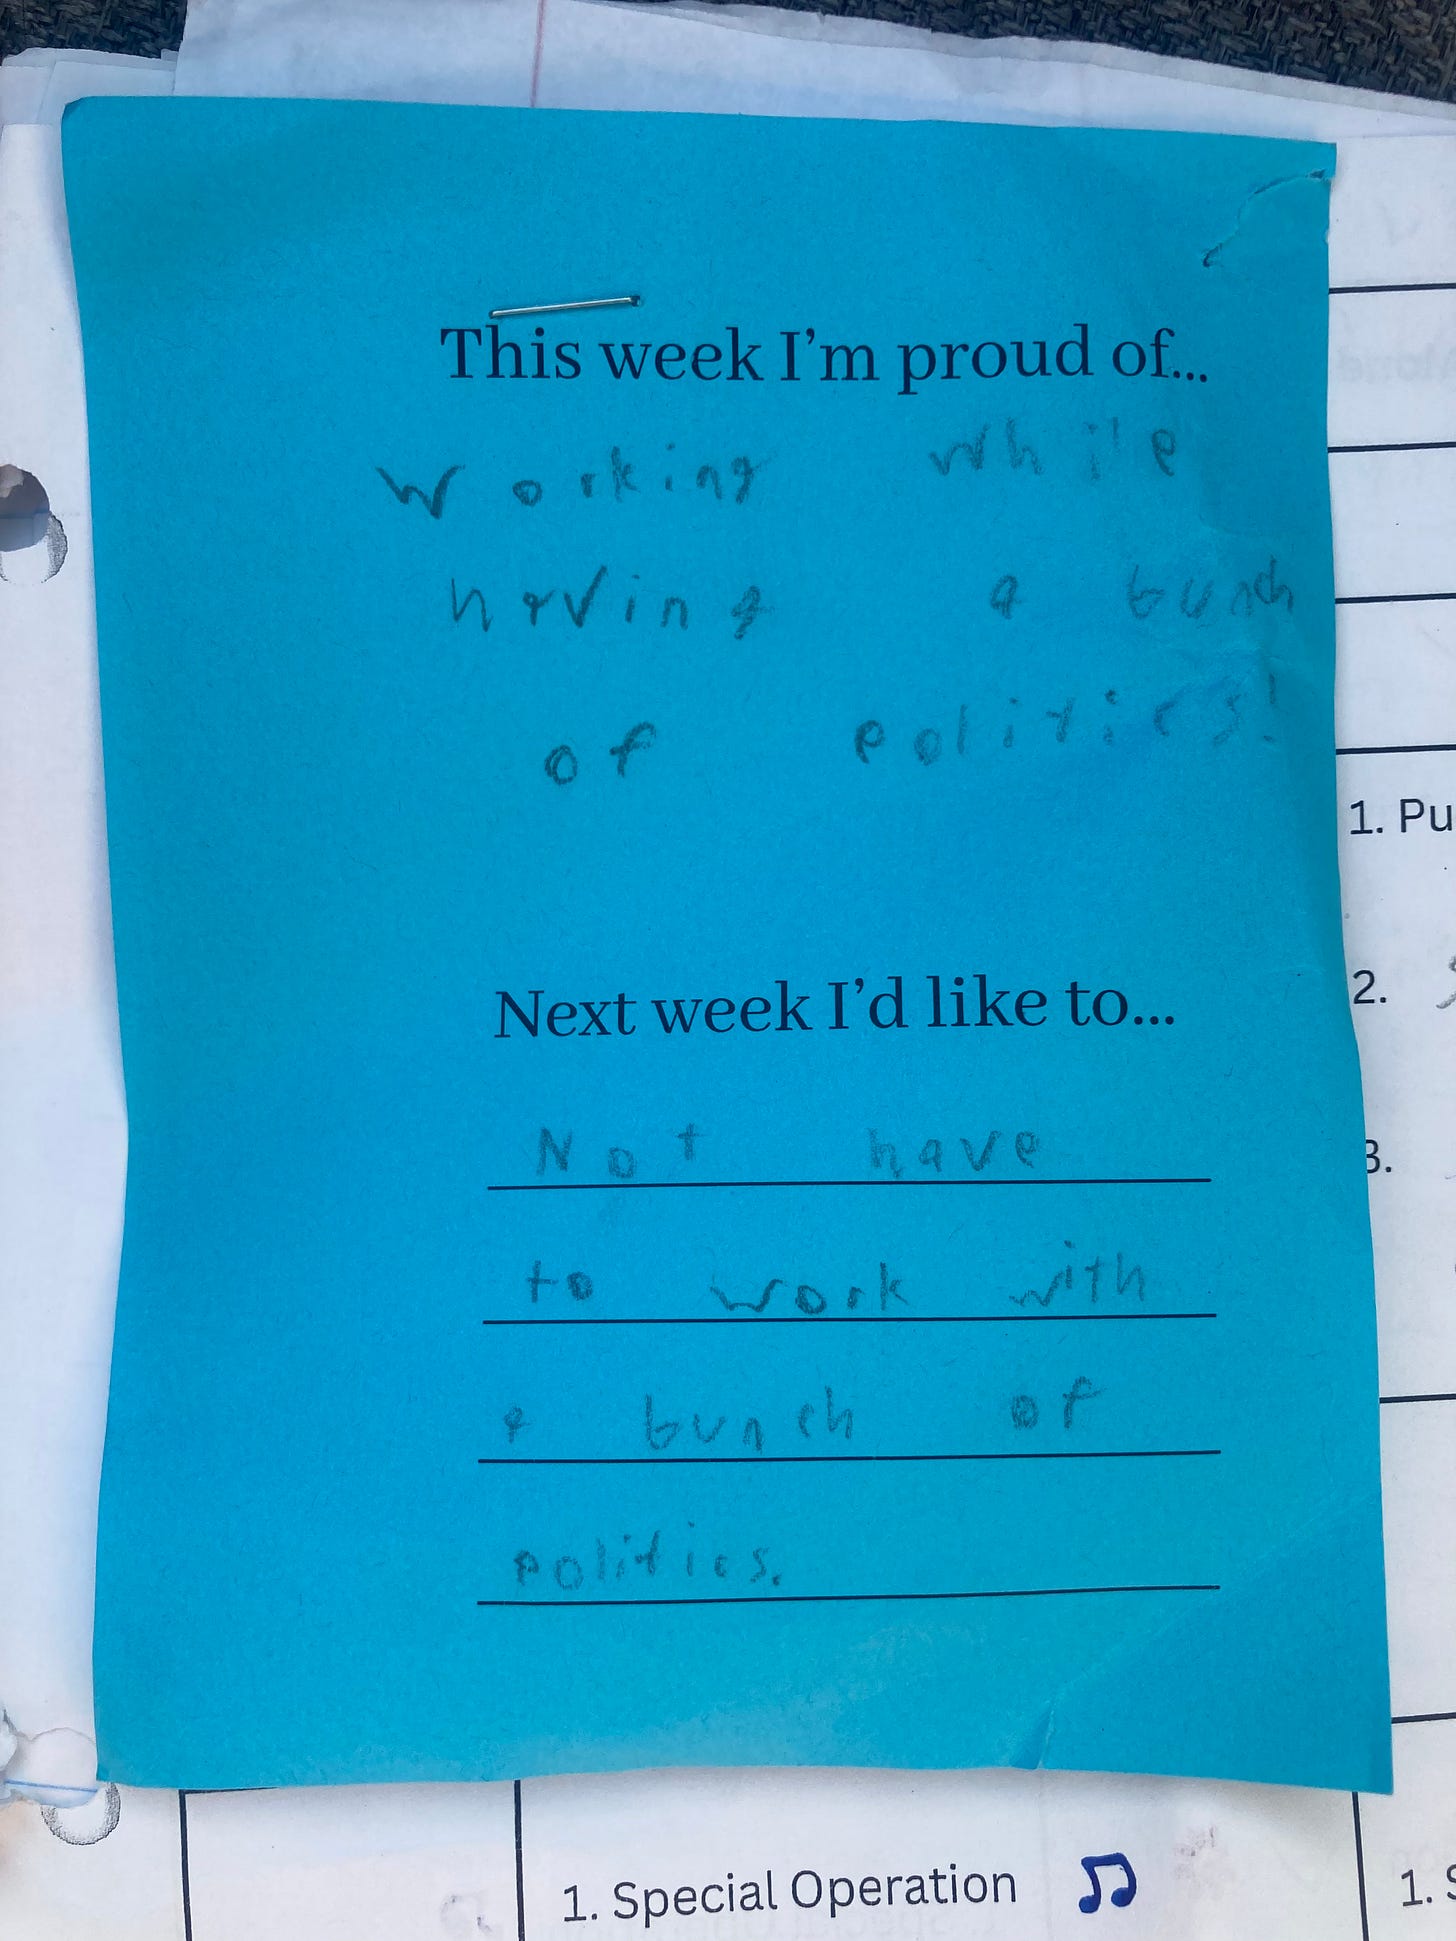 This week I'm proud of...
Working while
having a bunch
of politics!
1. Pu
Next week I'd like to...
2.
Not have
3.
to work with
a bunch of
politics.
1. Special Operation
1. S